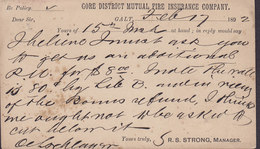 Re Policy
GORE DISTRICT MUTUAL FIRE INSURANCE COMPANY.
GALT, Feb 17 1892
Dear Sir,
Yours of 15th Inst at hand; in reply would say:
I believe I must ask you
to get us an additional
P.N. for $8.00. I note the rate
is 80. by Cl B. and in view
of the Bonus refund, I think
we ought not to be asked to
cut below it
Yours truly,
R. S. STRONG, MANAGER.